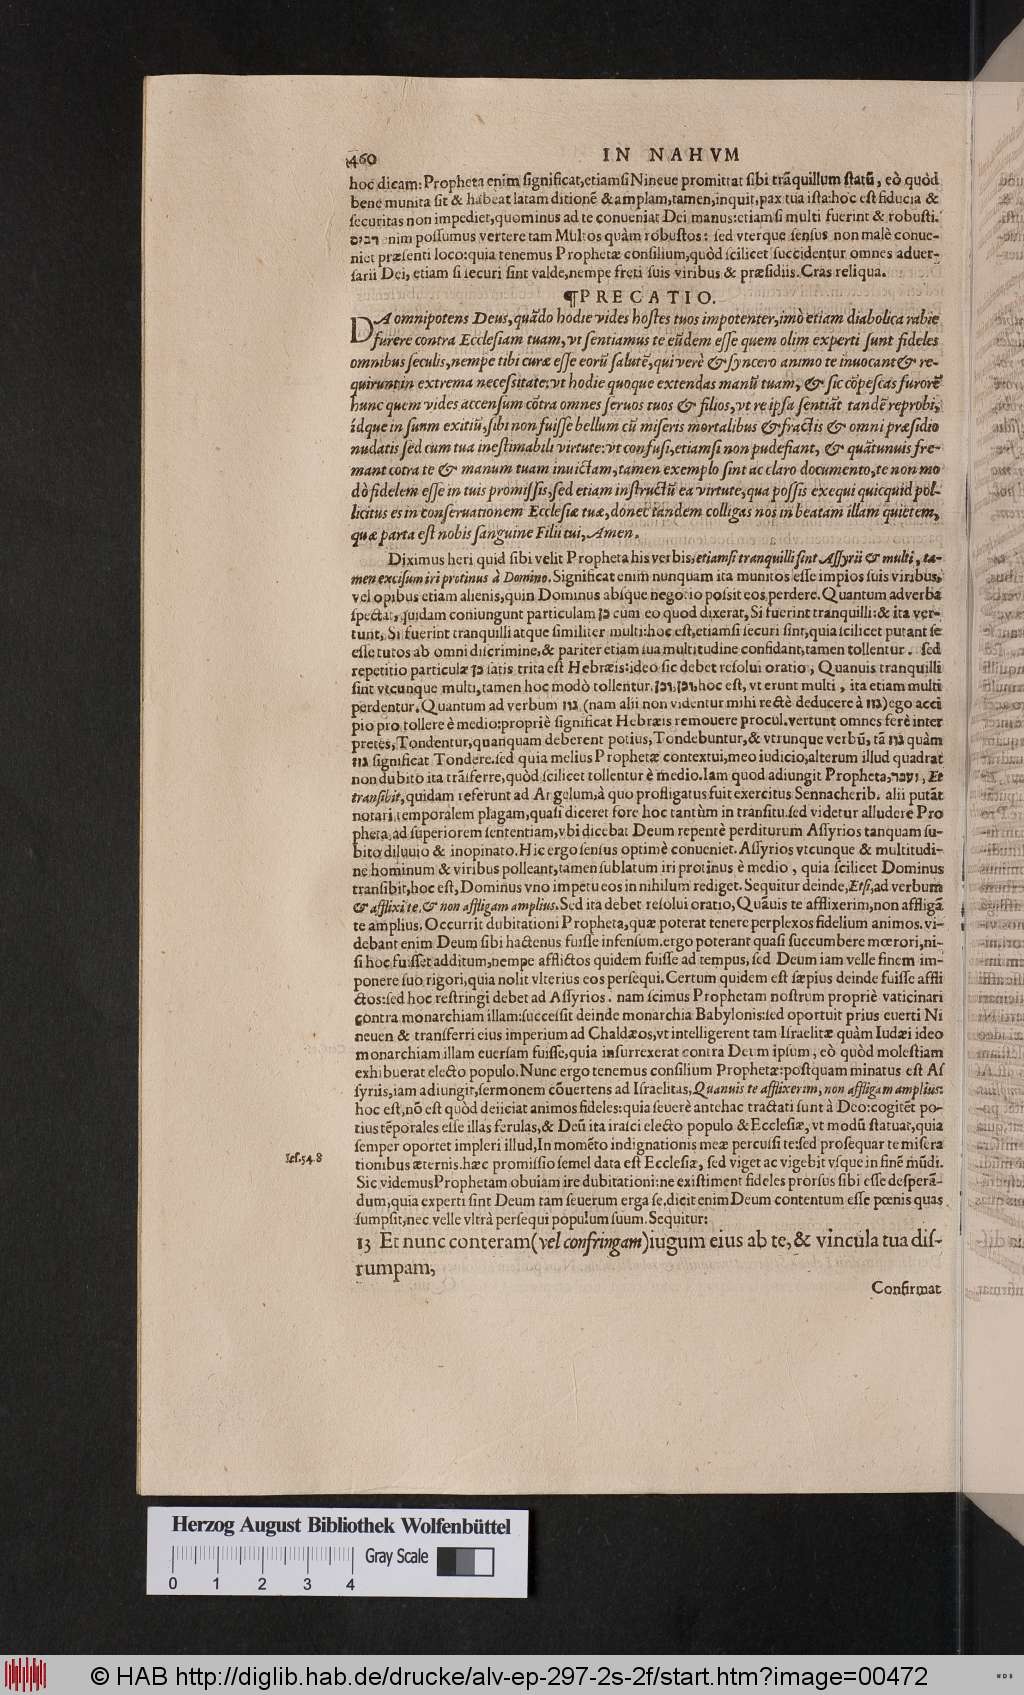 460 IN NAHVM
hoc dicam: Propheta enim ſignificat, etiamſi Nineue promittat ſibi trãquillum ſtatũ, eò quòd
bene munita ſit & habeat latam ditionẽ & amplam, tamen, inquit, pax tua iſta: hoc eſt fiducia &
ſecuritas non impediet, quominus ad te conueniat Dei manus: etiamſi multi fuerint & robuſti.
רבים enim poſſumus vertere tam Multos quàm robuſtos: ſed vterque ſenſus non malè conue-
niet præſenti loco: quia tenemus Prophetæ conſilium, quòd ſcilicet ſuccidentur omnes aduer-
ſarii Dei, etiam ſi ſecuri ſint valde, nempe freti ſuis viribus & præſidiis. Cras reliqua.
¶PRECATIO.
DA omnipotens Deus, quãdo hodie vides hoſtes tuos impotenter, imò etiam diabolica rabie
furere contra Eccleſiam tuam, vt ſentiamus te eũdem eſſe quem olim experti ſunt fideles
omnibus ſeculis, nempe tibi curæ eſſe eorũ ſalutẽ, qui verè & ſyncero animo te inuocant & re-
quirunt in extrema neceſſitate: vt hodie quoque extendas manũ tuam, & ſic cõpeſcas furorẽ
hunc quem vides accenſum cõtra omnes ſeruos tuos & filios, vt re ipſa ſentiãt tandẽ reprobi,
idque in ſuum exitiũ, ſibi non fuiſſe bellum cũ miſeris mortalibus & fractis & omni præſidio
nudatis ſed cum tua ineſtimabili virtute: vt confuſi, etiamſi non pudefiant, & quãtunuis fre-
mant cotra te & manum tuam inuictam, tamen exemplo ſint ac claro documento, te non mo
dò fidelem eſſe in tuis promiſſis, ſed etiam inſtructũ ea virtute, qua poſſis exequi quicquid pol-
licitus es in conſeruationem Eccleſiæ tuæ, donec tandem colligas nos in beatam illam quietem,
quæ parta eſt nobis ſanguine Filii tui, Amen.
Diximus heri quid ſibi velit Propheta his verbis: etiamſi tranquilli ſint Aſſyrii & multi, ta-
men exciſum iri protinus à Domino. Significat enim nunquam ita munitos eſſe impios ſuis viribus,
vel opibus etiam alienis, quin Dominus abſque negotio poſsit eos perdere. Quantum ad verba
ſpectat, quidam coniungunt particulam כן cum eo quod dixerat, Si fuerint tranquilli: & ita ver-
tunt, Si fuerint tranquilli atque ſimiliter multi: hoc eſt, etiamſi ſecuri ſint, quia ſcilicet putant ſe
eſſe tutos ab omni diſcrimine, & pariter etiam ſua multitudine confidant, tamen tollentur. ſed
repetitio particulæ כן ſatis trita eſt Hebræis: ideo ſic debet reſolui oratio, Quanuis tranquilli
ſint vtcunque multi, tamen hoc modò tollentur. וכן, וכן, hoc eſt, vt erunt multi, ita etiam multi
perdentur. Quantum ad verbum גוז (nam alii non videntur mihi rectè deducere à גזז) ego acci
pio pro tollere è medio: propriè ſignificat Hebræis remouere procul. vertunt omnes ferè inter
pretes, Tondentur, quanquam deberent potius, Tondebuntur, & vtrunque verbũ, tã גזז quàm
גוז ſignificat Tondere. ſed quia melius Prophetæ contextui, meo iudicio, alterum illud quadrat
non dubito ita trãſferre, quòd ſcilicet tollentur è medio. Iam quod adiungit Propheta, ועבר, Et
tranſibit, quidam referunt ad Angelum, à quo profligatus fuit exercitus Sennacherib. alii putãt
notari temporalem plagam, quaſi diceret fore hoc tantùm in tranſitu. ſed videtur alludere Pro
pheta ad ſuperiorem ſententiam, vbi dicebat Deum repentè perditurum Aſſyrios tanquam ſu-
bito diluuio & inopinato. Hic ergo ſenſus optimè conueniet. Aſſyrios vtcunque & multitudi-
ne hominum & viribus polleant, tamen ſublatum iri protinus è medio, quia ſcilicet Dominus
tranſibit, hoc eſt, Dominus vno impetu eos in nihilum rediget. Sequitur deinde, Etſi, ad verbum
& afflixi te, & non affligam amplius. Sed ita debet reſolui oratio, Quãuis te afflixerim, non affligã
te amplius. Occurrit dubitationi Propheta, quæ poterat tenere perplexos fidelium animos. vi-
debant enim Deum ſibi hactenus fuiſſe infenſum. ergo poterant quaſi ſuccumbere mœrori, ni-
ſi hoc fuiſſet additum, nempe afflictos quidem fuiſſe ad tempus, ſed Deum iam velle finem im-
ponere ſuo rigori, quia nolit vlterius eos perſequi. Certum quidem eſt ſæpius deinde fuiſſe affli
ctos: ſed hoc reſtringi debet ad Aſſyrios. nam ſcimus Prophetam noſtrum propriè vaticinari
contra monarchiam illam: ſucceſſit deinde monarchia Babylonis: ſed oportuit prius euerti Ni
neuen & tranſferri eius imperium ad Chaldæos, vt intelligerent tam Iſraelitæ quàm Iudæi ideo
monarchiam illam euerſam fuiſſe, quia inſurrexerat contra Deum ipſum, eò quòd moleſtiam
exhibuerat electo populo. Nunc ergo tenemus conſilium Prophetæ: poſtquam minatus eſt Aſ
ſyriis, iam adiungit, ſermonem cõuertens ad Iſraelitas, Quanuis te afflixerim, non affligam amplius:
hoc eſt, nõ eſt quòd deiiciat animos fideles: quia ſeuerè antehac tractati ſunt à Deo: cogitẽt po-
tius tẽporales eſſe illas ferulas, & Deũ ita iraſci electo populo & Eccleſiæ, vt modũ ſtatuat, quia
ſemper oportet impleri illud, In momẽto indignationis meæ percuſſi te: ſed proſequar te miſera
Ieſ. 54. 8
tionibus æternis. hæc promiſſio ſemel data eſt Eccleſiæ, ſed viget ac vigebit vſque in finẽ mũdi.
Sic videmus Prophetam obuiam ire dubitationi: ne exiſtiment fideles prorſus ſibi eſſe deſperã-
dum, quia experti ſint Deum tam ſeuerum erga ſe. dicit enim Deum contentum eſſe pœnis quas
ſumpſit, nec velle vltrà perſequi populum ſuum. Sequitur:
13 Et nunc conteram (vel confringam) iugum eius ab te, & vincula tua diſ-
rumpam,
Confirmat
Herzog August Bibliothek Wolfenbüttel
Gray Scale
0 1 2 3 4
© HAB http://diglib.hab.de/drucke/alv-ep-297-2s-2f/start.htm?image=00472
WDB